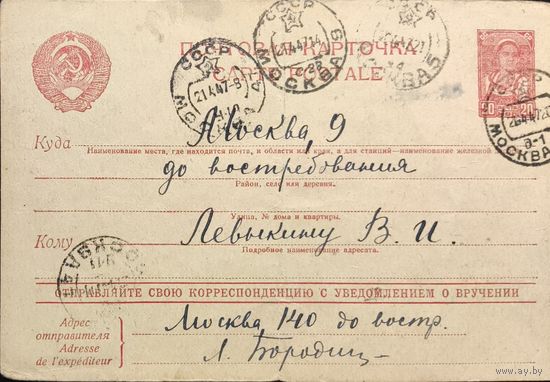 СССР
МОСКВА 9
21.4.47-8
СССР
МОСКВА
21447 14
СССР
МОСКВА 5
ПОЧТОВАЯ КАРТОЧКА
CARTE POSTALE
20 20
МОСКВА
а-1
Куда
Москва, 9
Наименование места, где находится почта, и области или края, а для станций—наименование железной
до востребования
Район, село или деревня.
Улица, № дома и квартиры.
Кому
Левыкину В. И.
Подробное наименование адресата.
ОТПРАВЛЯЙТЕ СВОЮ КОРРЕСПОНДЕНЦИЮ С УВЕДОМЛЕНИЕМ О ВРУЧЕНИИ
Адрес
отправителя
Adresse
de l'expéditeur
Москва 140 до востр.
Л. Бородиц-
www.ay.by